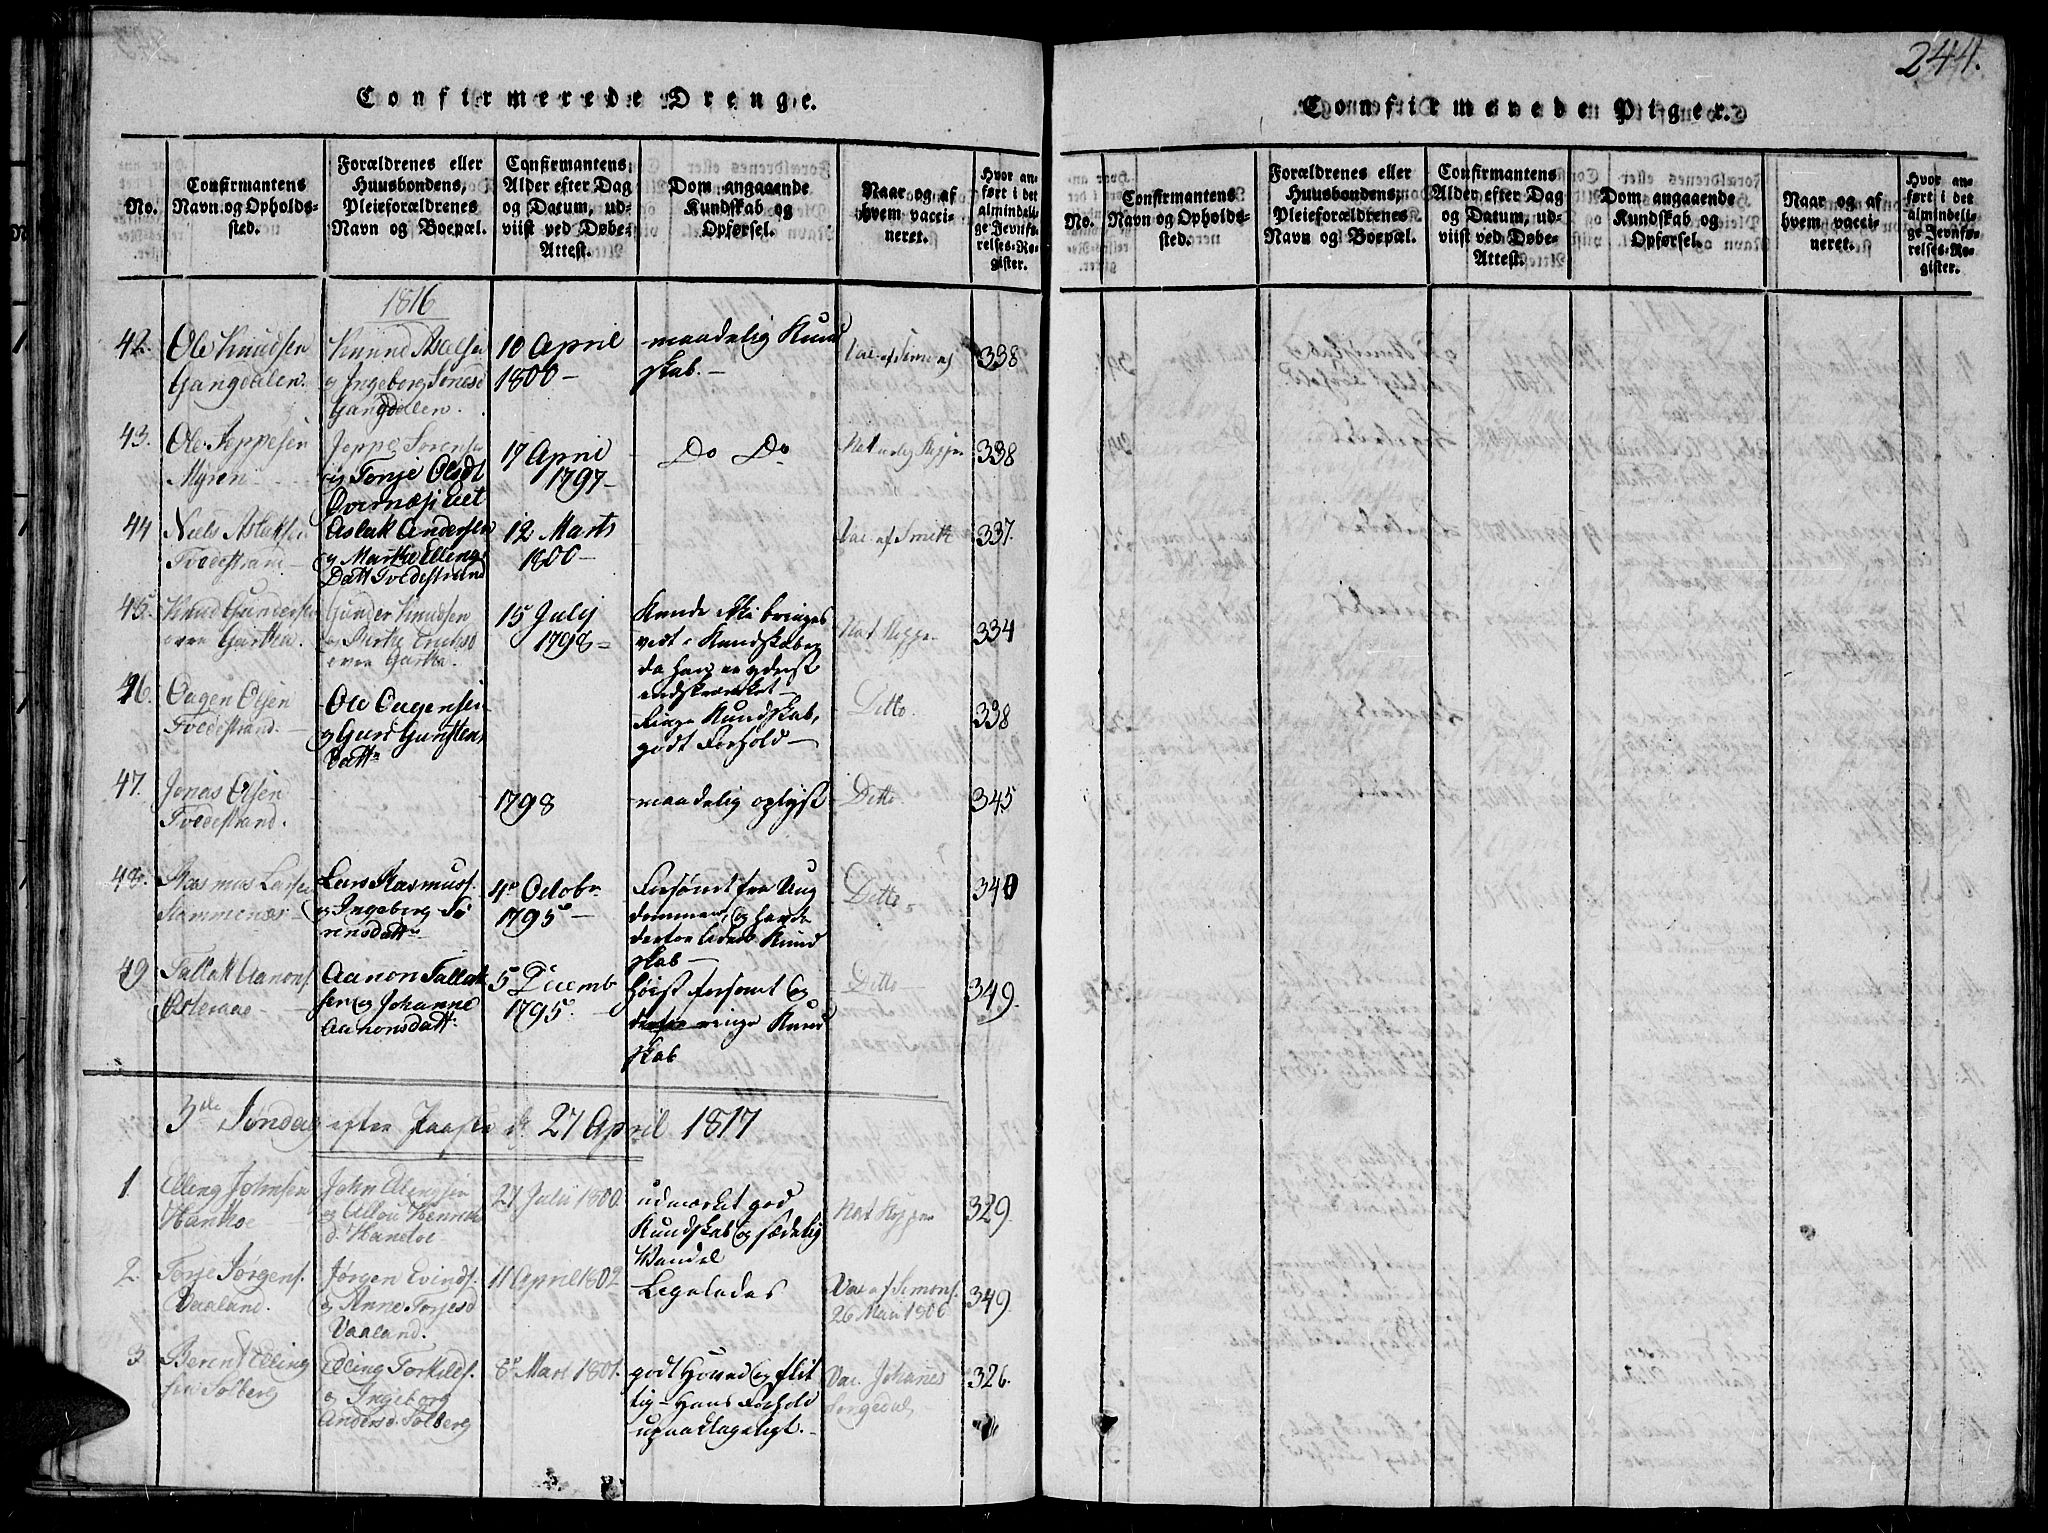 244.
Confirmerede Drenge.
No.
Confirmantens
Navn og Opholds-
sted.
Forældrenes eller
Huusbondens,
Pleieforældrenes
Navn og Boepæl.
Confirmantens
Alder efter Dag
og Datum, ud-
viist ved Døbe-
Attest.
Dom angaaende
Kundskab og
Opførsel.
Naar og af
hvem vacci-
neret.
Hvor an-
ført i det
almindeli-
ge Jevnfø-
relses-Re-
gister.
1816
42.
Ole Knudsen
Gangdalen.
Knund
og Ingeborg
Gangdallen.
10 April
1800 –
maadelig Kund
skab. –
Vac. af Simons
338
43.
Ole Jeppesen
Myren
Jeppe Sørens
og Torje Olsdt
17 April
1797 –
Do Do
Nat
338
44
Niels Aslaksen
Tvedestrand
Aslak Andersen
og Marthe Ellings
Datt Tvedestrand
12 Marts
1800 –
Vac. af Smith
337.
45.
Knud Gundersen
Gunder Knudsen
15 July
1798 =
Kunde ikke bringes
vidt i Kundskaber
da han er yderst
indskrænket
Nat Kopper
334
46.
Oagen Olsen
Tvedestrand.
Ole Oagensen
og Guro Gunsten
Datt.
Ringe Kundskab,
godt Forhold –
Ditto.
338
47.
Jonas Olsen
Tvedestrand.
1798
maadelig oplyst
Ditto.
345
48.
Rasmus Larsen
Lars Rasmuss.
og Ingeborg Sø
rensdatt.
4 Octobr
1795 –
Forsømt fra Ung
dommen, og havde
derfor liden Kund
skab –
Ditto
340
49
Tallak Aanons.
Østeraae
Aanon Tallak
sen og Johanne
Aanonsdatt.
5 Decemb
1795.
Høist forsømt og
derfor ringe Kund
skab
Ditto
349.
3die Søndag efter Paaske d. 27 April 1817
1
Elling Johnsen
Hanthoe
John Ellingsen
27 Julii 1800.
udmærket god
Kundskab og sædelig
Wandel
Nat Kopper
329.
2.
Torje Jørgens.
Vaaland.
Jørgen Evinds.
og Anne Torjesd
Vaaland.
11 April 1802
Ligeledes
Vac af Simons.
26 Mai 1800
349.
3.
Berent Elling
sen Solberg
Elling Torkilds.
og Ingeborg
Andersd. Solberg
8 Mart 1801.
godt Hoved og flit
tig – Hans Forhold
upaaklageligt. –
Vac. Johanes
Songedal
326.
Confirmerede Piger.
No.
Confirmantens
Navn og Opholds-
sted.
Forældrenes eller
Huusbondens,
Pleieforældrenes
Navn og Boepæl.
Confirmantens
Alder efter Dag
og Datum, ud-
viist ved Døbe-
Attest.
Dom angaaende
Kundskab og
Opførsel.
Naar og af
hvem vacci-
neret.
Hvor an-
ført i det
almindeli-
ge Jevnfø-
relses-Re-
gister.